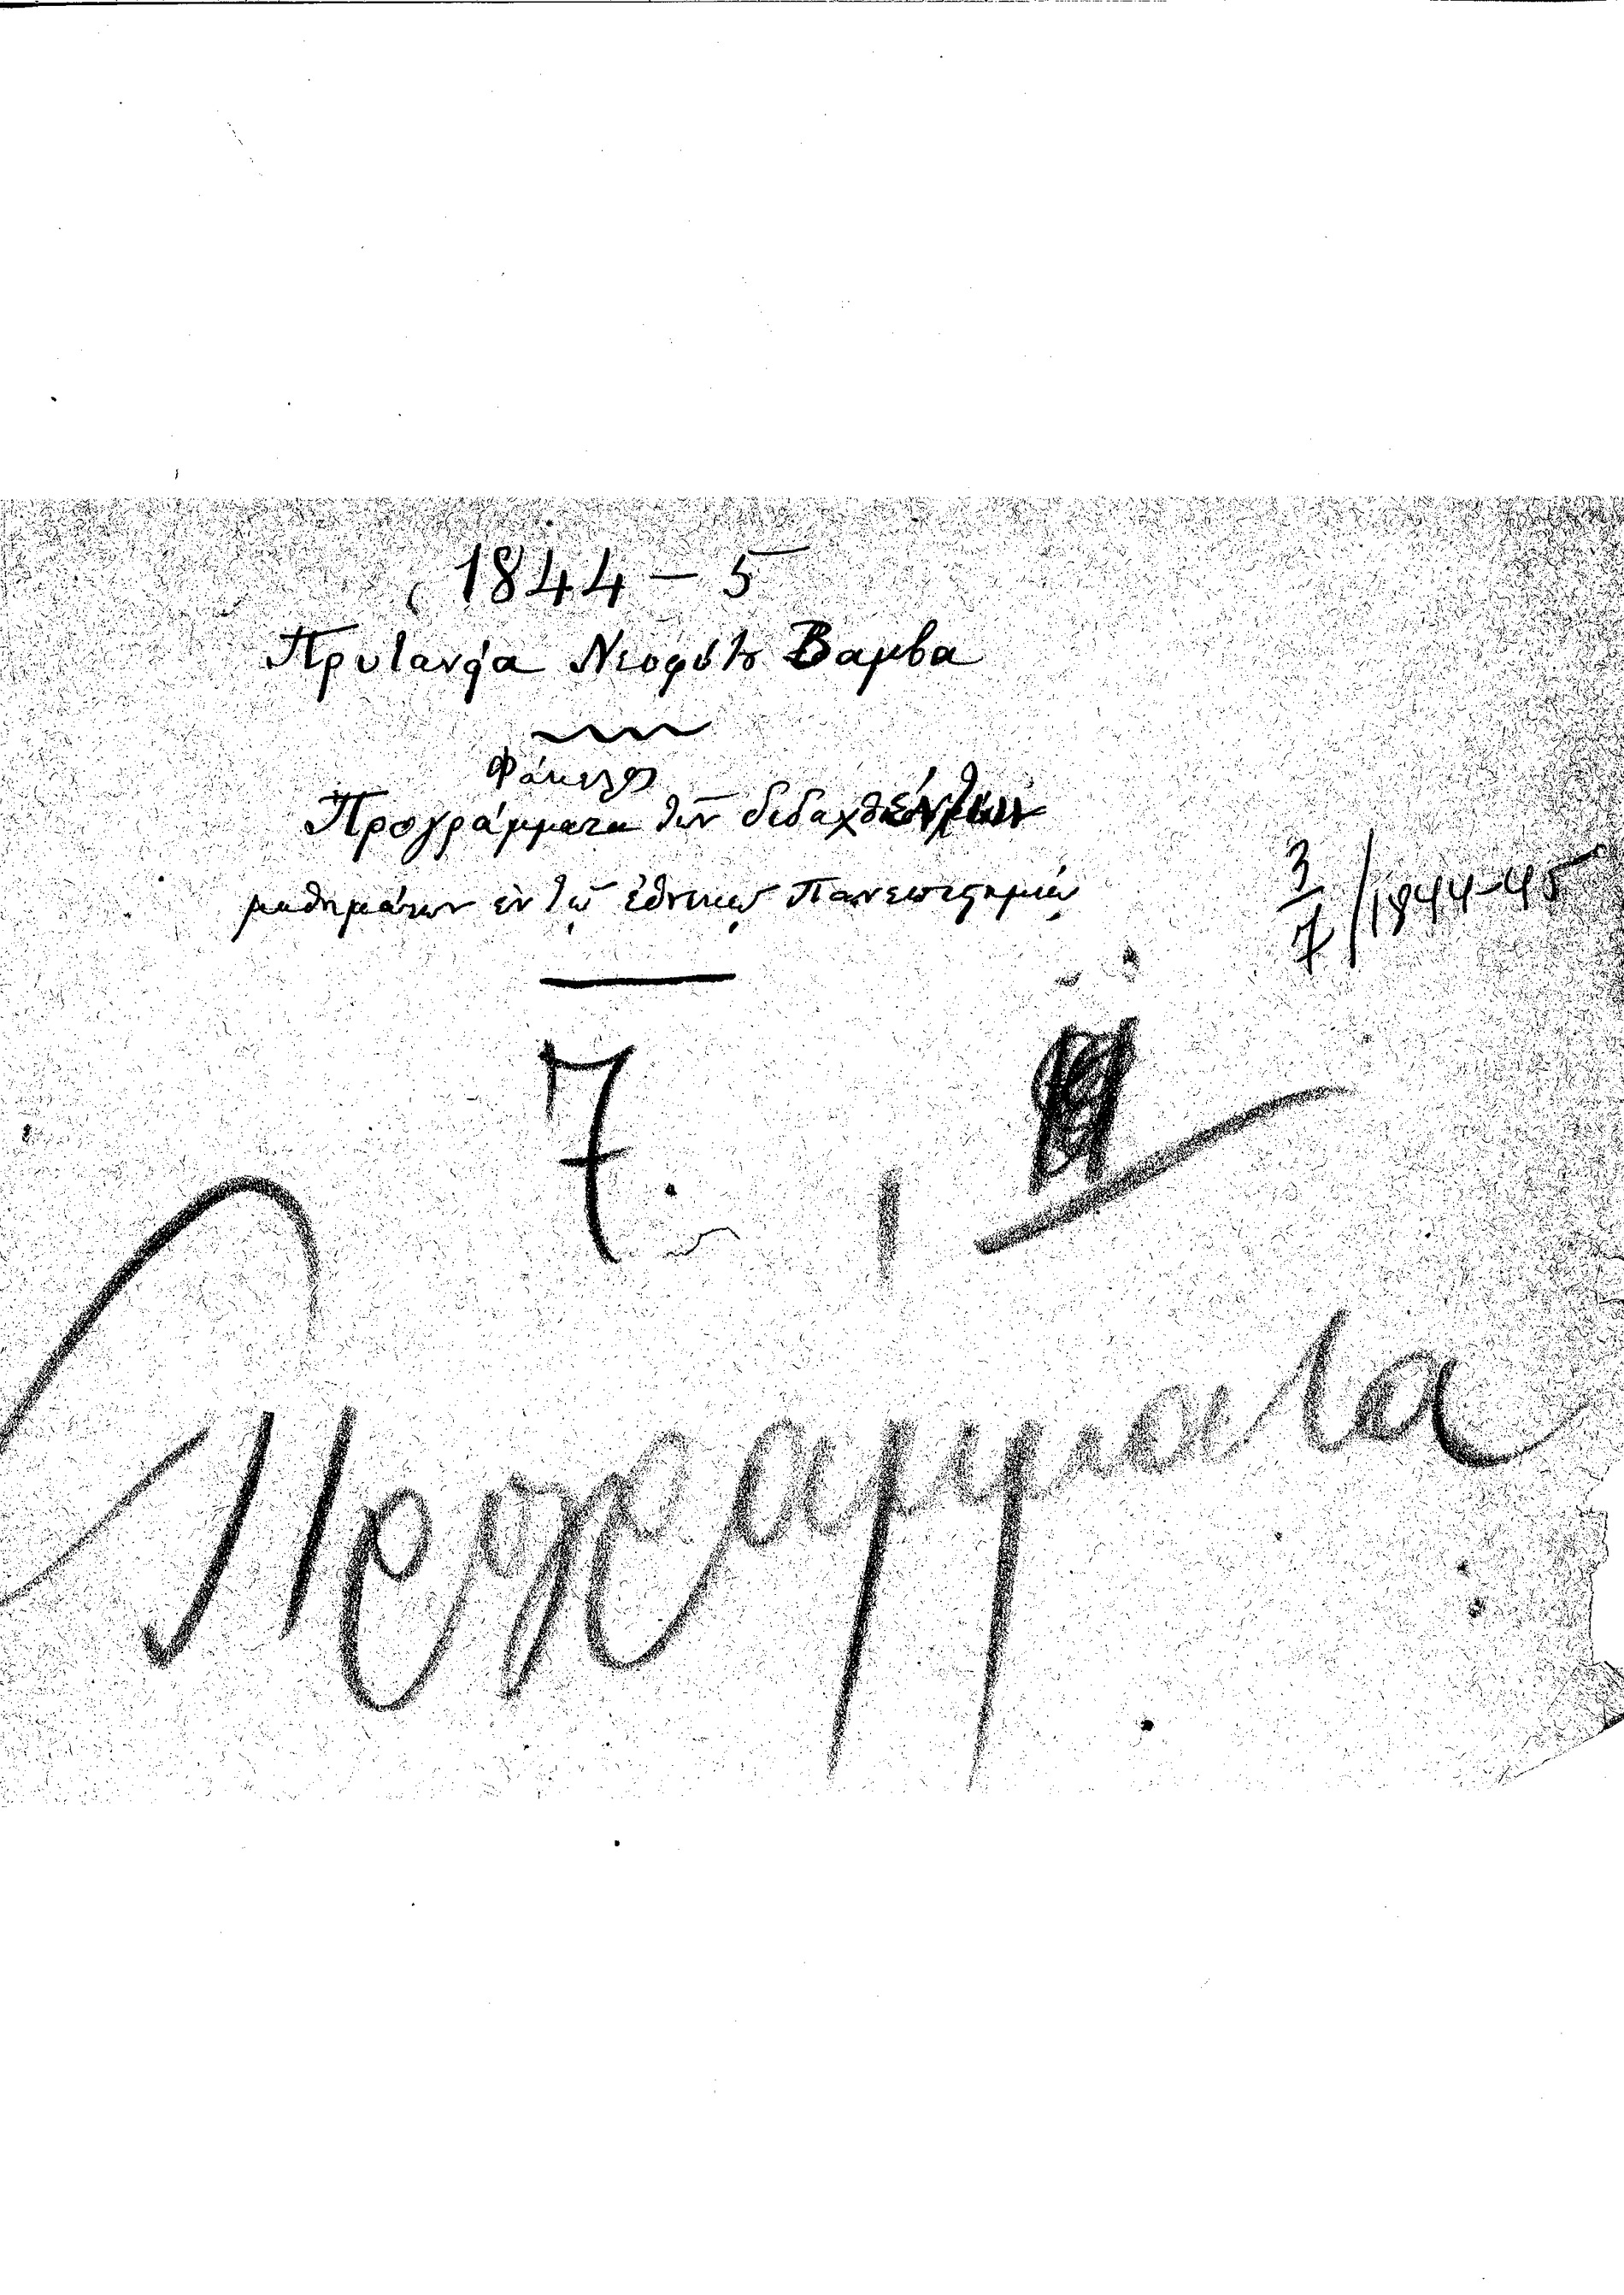 1844 – 5
Πρυτανεία Νεοφύτου Βαμβα
Φάκελος
Προγράμματα τῶν διδαχθέντων
μαθημάτων ἐν τῷ ἐθνικῷ Πανεπιστημίῳ
3/7/1844-45
7.
Προγράμματα